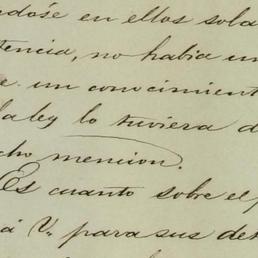 ndose en ellos sola
tencia, no habia un
e un conocimient
la ley lo tuviera d
cho mencion.
Es cuanto sobre el p
á V. para sus det